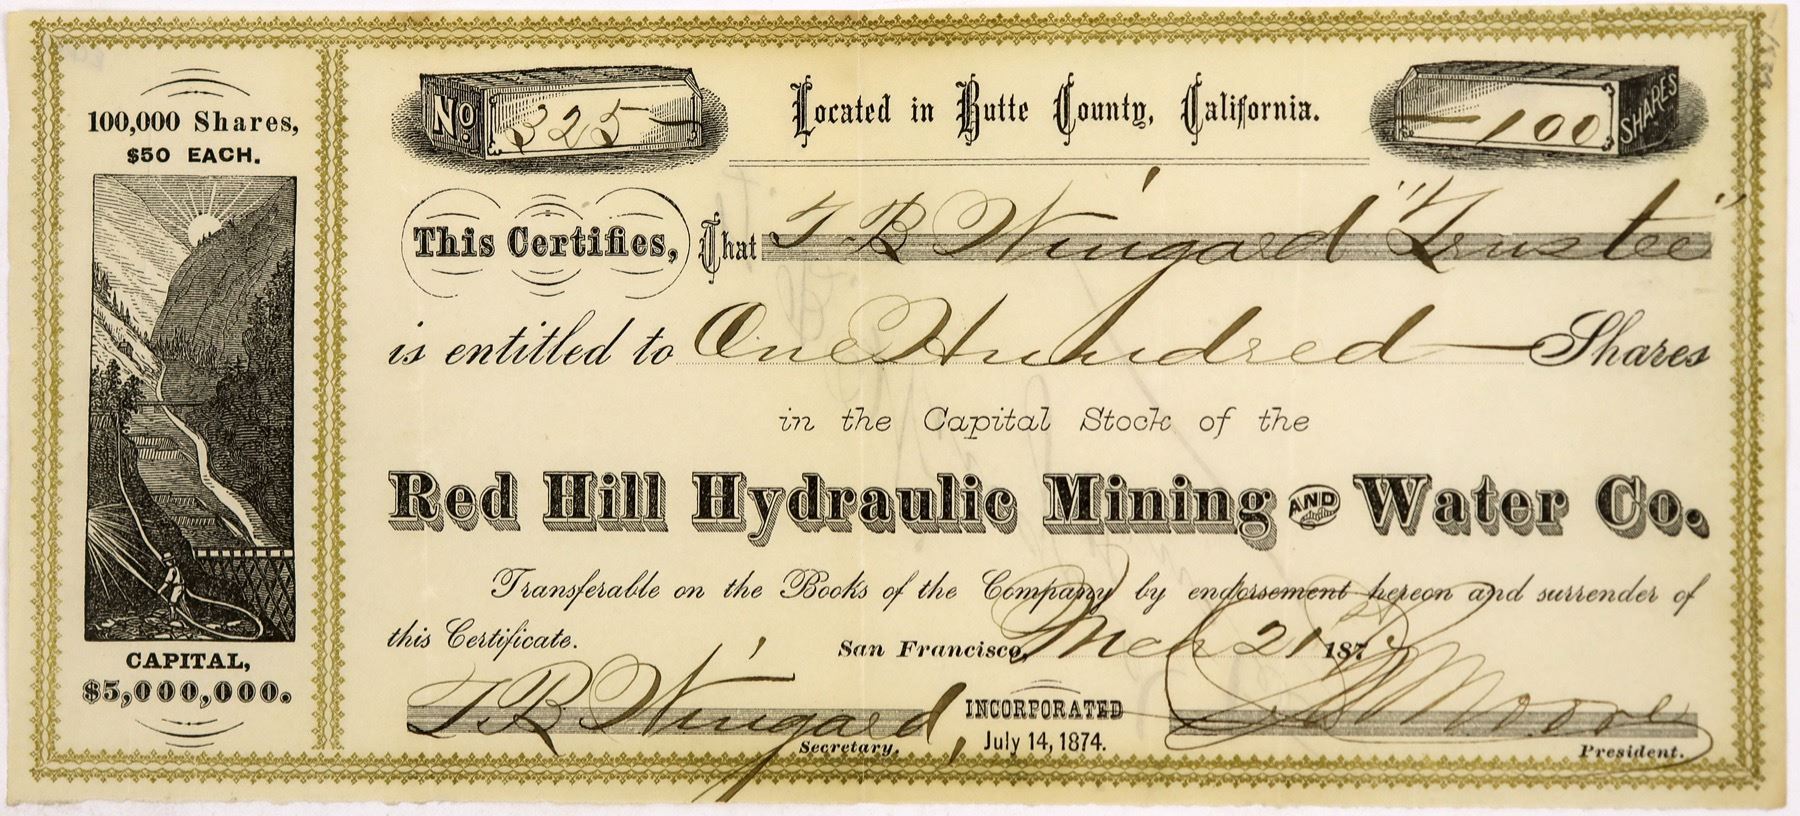 100,000 Shares,
$50 EACH.
CAPITAL,
$5,000,000.
No. 325
Located in Butte County, California.
100 SHARES
This Certifies, That T. B. Wingard "Trustee"
is entitled to One Hundred Shares
in the Capital Stock of the
Red Hill Hydraulic Mining AND Water Co.
Transferable on the Books of the Company by endorsement hereon and surrender of
this Certificate.
San Francisco, Mch 21st 187
T. B. Wingard,
Secretary.
INCORPORATED
July 14, 1874.
Moore
President.